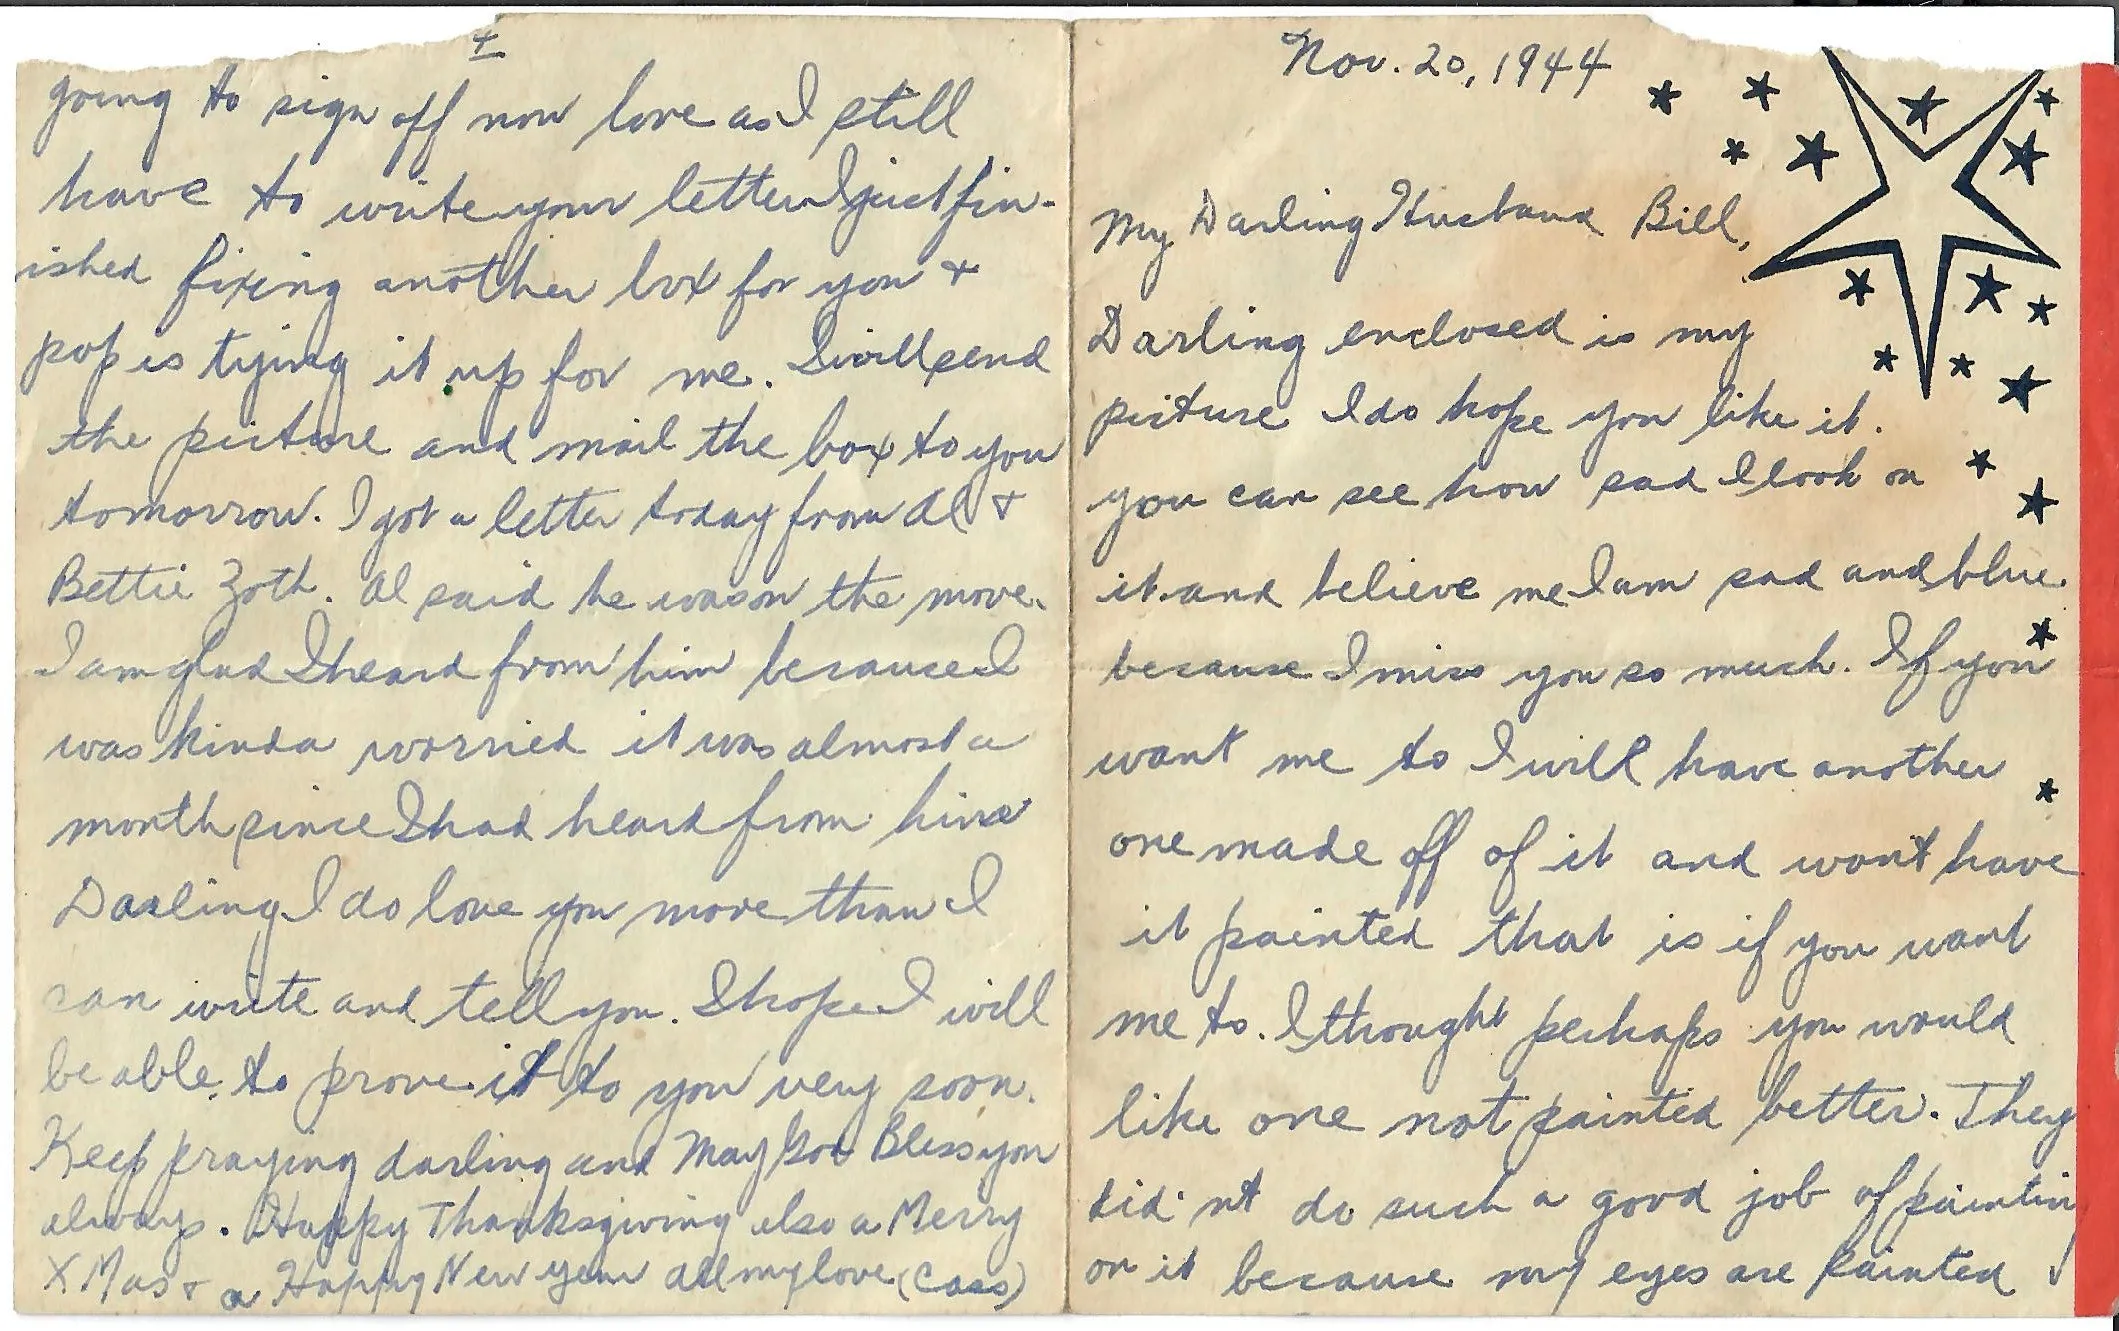 4
going to sign off now love as I still
have to write your letter I just fin-
ished fixing another box for you +
pop is tying it up for me. I will send
the picture and mail the box to you
tomorrow. I got a letter today from Al +
Bettie Zoth. Al said he was on the move.
I am glad I heard from him because I
was kinda worried it was almost a
month since I had heard from him
Darling I do love you more than I
can write and tell you. I hope I will
be able to prove it to you very soon.
Keep praying darling and May God Bless you
always. Happy Thanksgiving also a Merry
XMas + a Happy New year all my love (Cass)
Nov. 20, 1944
My Darling Husband Bill,
Darling enclosed is my
picture I do hope you like it.
you can see how sad I look on
it and believe me I am sad and blue
because I miss you so much. If you
want me to I will have another
one made off of it and wont have
it painted that is if you want
me to. I thought perhaps you would
like one not painted better. They
did'nt do such a good job of paintin
on it because my eyes are painted